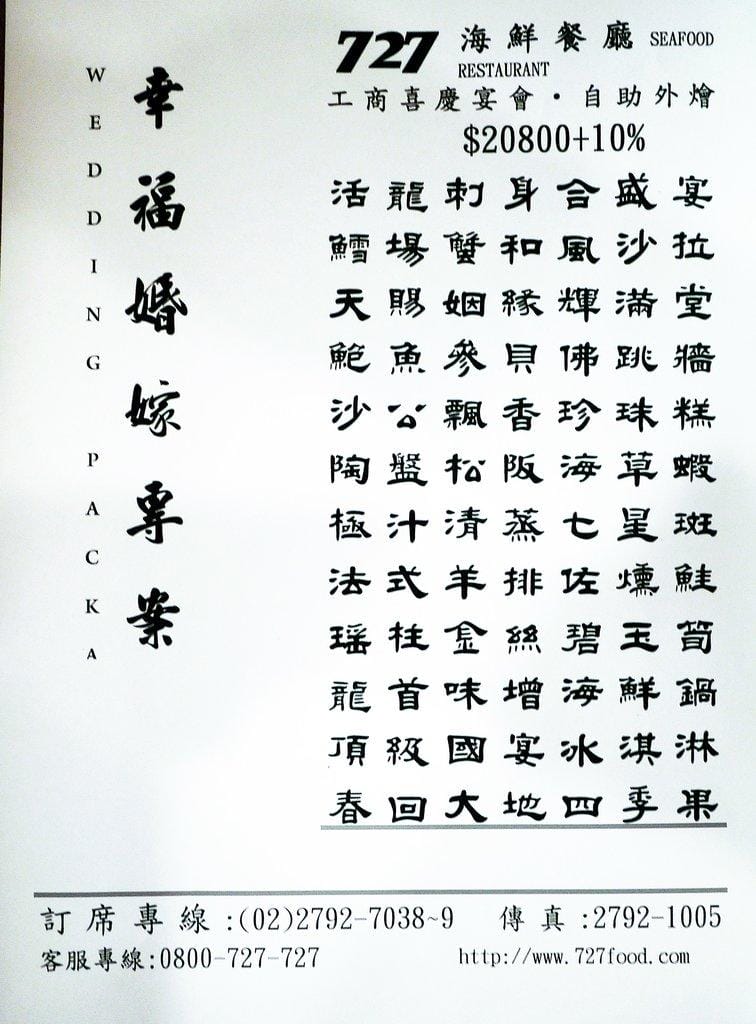 727 海鮮餐廳 SEAFOOD
RESTAURANT
工商喜慶宴會・自助外燴
$20800+10%
幸福婚嫁專案
WEDDING PACKA
活龍刺身合盛宴
鱈場蟹和風沙拉
天賜姻緣輝滿堂
鮑魚參貝佛跳牆
沙公飄香珍珠糕
陶盤松阪海草蝦
極汁清蒸七星斑
法式羊排佐燻鮭
瑤柱金絲碧玉筍
龍首味增海鮮鍋
頂級國宴冰淇淋
春回大地四季果
訂席專線:(02)2792-7038~9 傳真:2792-1005
客服專線:0800-727-727 http://www.727food.com